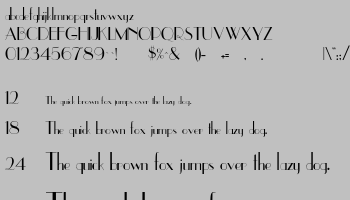 abcdefghijklmnopqrstuvwxyz
ABCDEFGHIJKLMNOPQRSTUVWXYZ
0123456789 ! $%^& ()- += . . |\~::/
12 The quick brown fox jumps over the lazy dog.
18 The quick brown fox jumps over the lazy dog.
24 The quick brown fox jumps over the lazy dog.